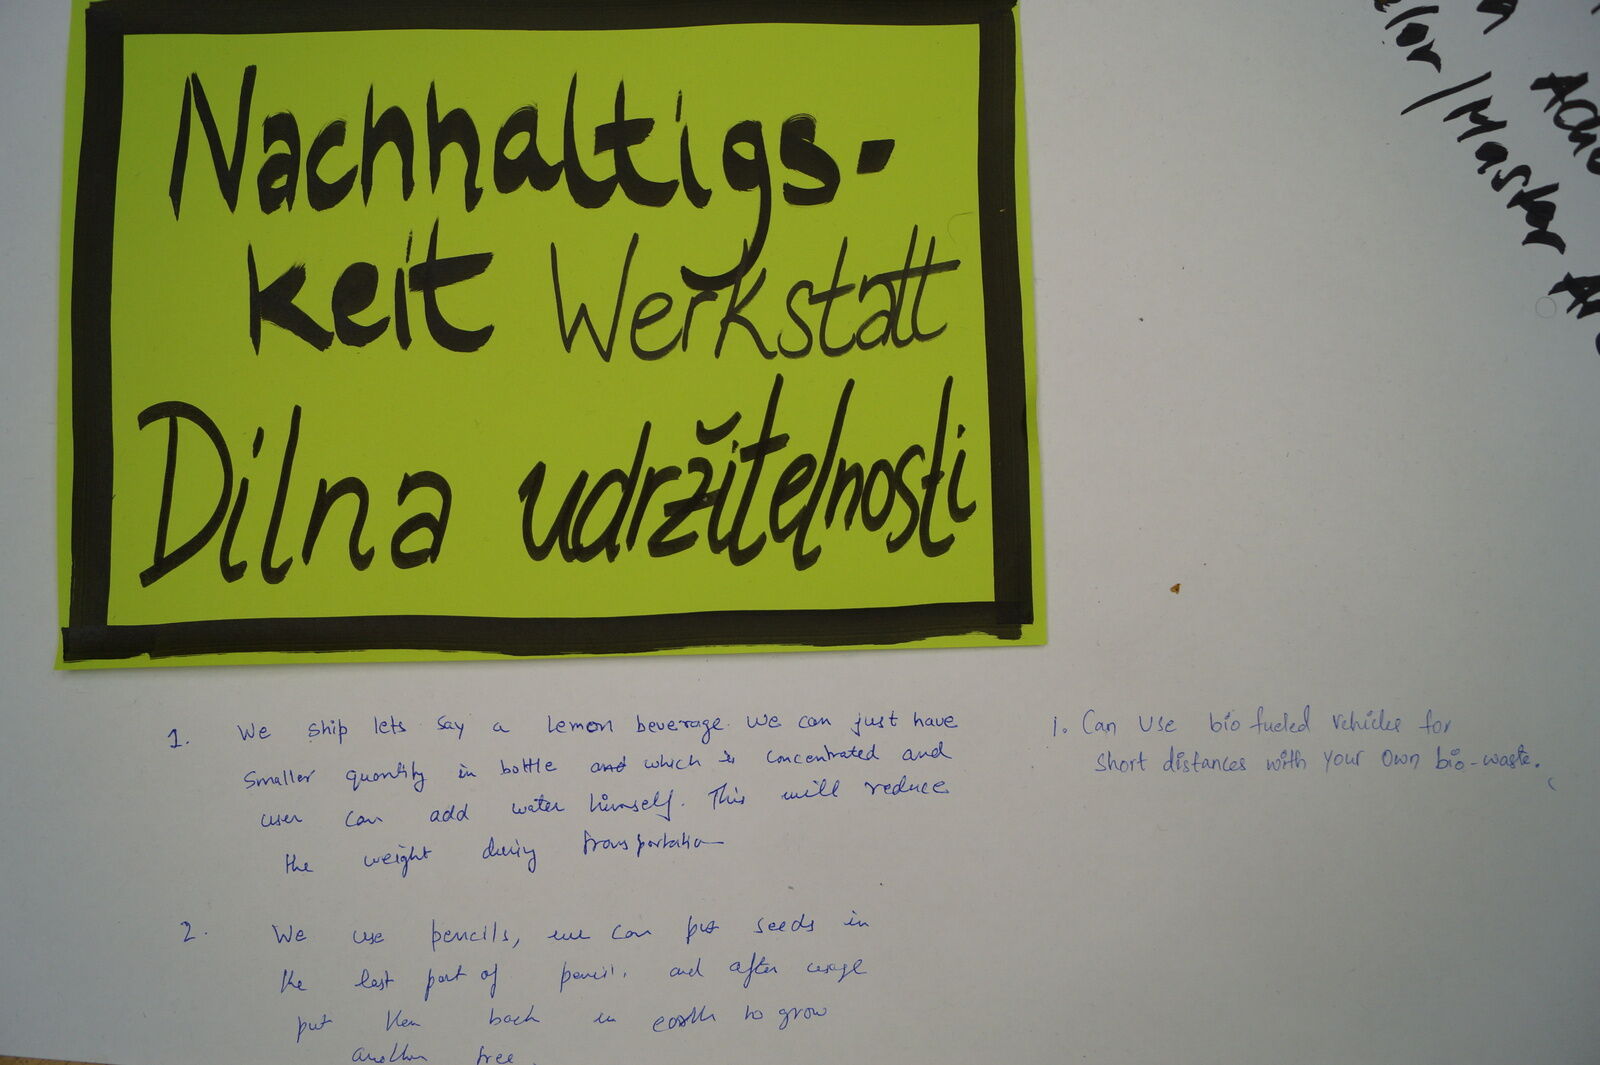 Nachhaltigs-
keit Werkstatt
Dilna udržitelnosti
elor / Master
1. We ship lets say a lemon beverage. We can just have
smaller quantity in bottle and which is concentrated and
user can add water himself. This will reduce
the weight during transportation
2. We use pencils, we can put seeds in
the last part of pencil. and after usage
put then back in earth to grow
another tree.
1. Can Use bio fueled vehicles for
short distances with your own bio-waste.